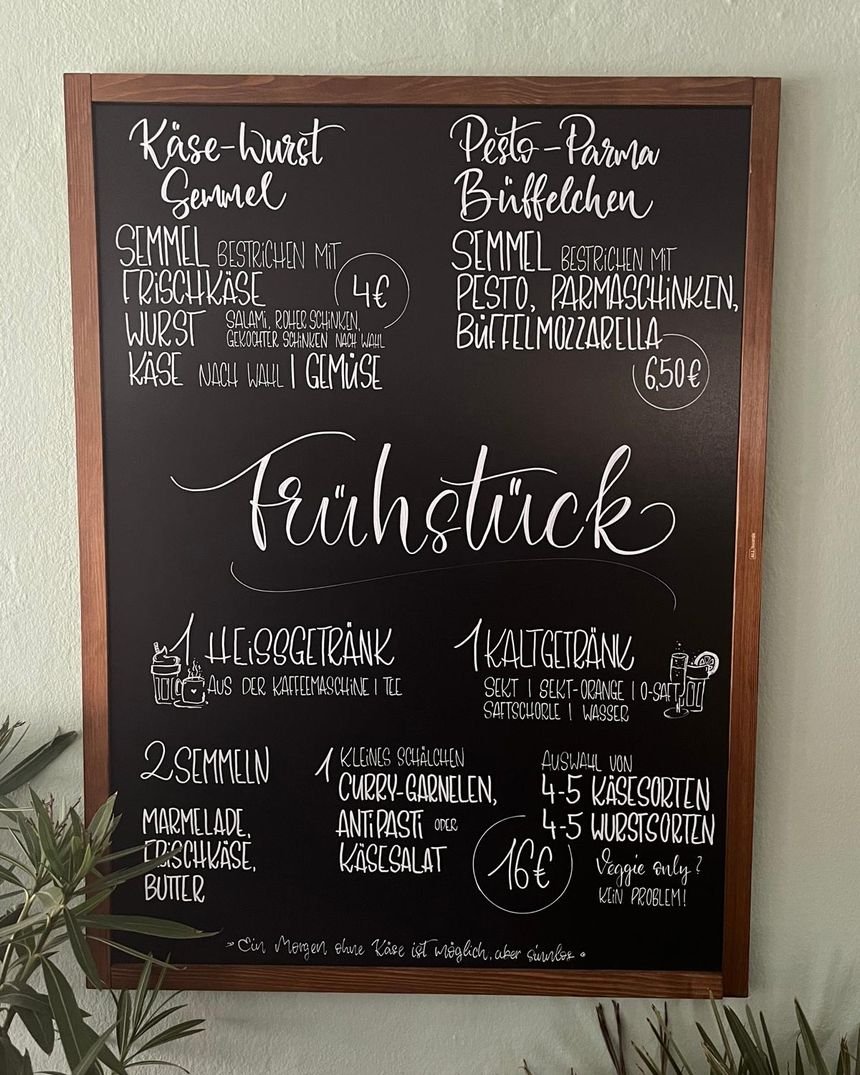 Käse-Wurst
Semmel
SEMMEL BESTRICHEN MIT
FRISCHKÄSE
4€
WURST SALAMI, ROHER SCHINKEN,
GEKOCHTER SCHINKEN NACH WAHL
KÄSE NACH WAHL | GEMÜSE
Pesto-Parma
Büffelchen
SEMMEL BESTRICHEN MIT
PESTO, PARMASCHINKEN,
BÜFFELMOZZARELLA
6,50€
Frühstück
1 HEISSGETRÄNK
AUS DER KAFFEEMASCHINE | TEE
1 KALTGETRÄNK
SEKT | SEKT-ORANGE | O-SAFT
SAFTSCHORLE | WASSER
2 SEMMELN
MARMELADE,
FRISCHKÄSE,
BUTTER
1 KLEINES SCHÄLCHEN
CURRY-GARNELEN,
ANTIPASTI ODER
KÄSESALAT
AUSWAHL VON
4-5 KÄSESORTEN
4-5 WURSTSORTEN
16€
Veggie only?
KEIN PROBLEM!
" Ein Morgen ohne Käse ist möglich, aber sinnlos "